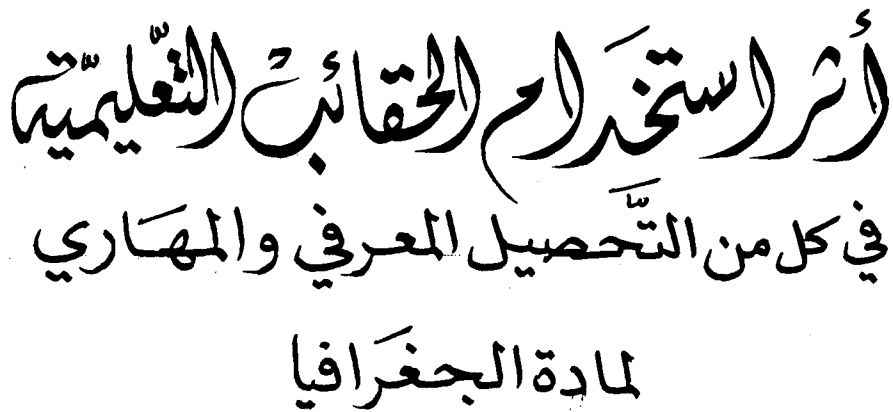 أثر استخدام الحقائب التعليمية
في كل من التحصيل المعرفي والمهاري
لمادة الجغرافيا